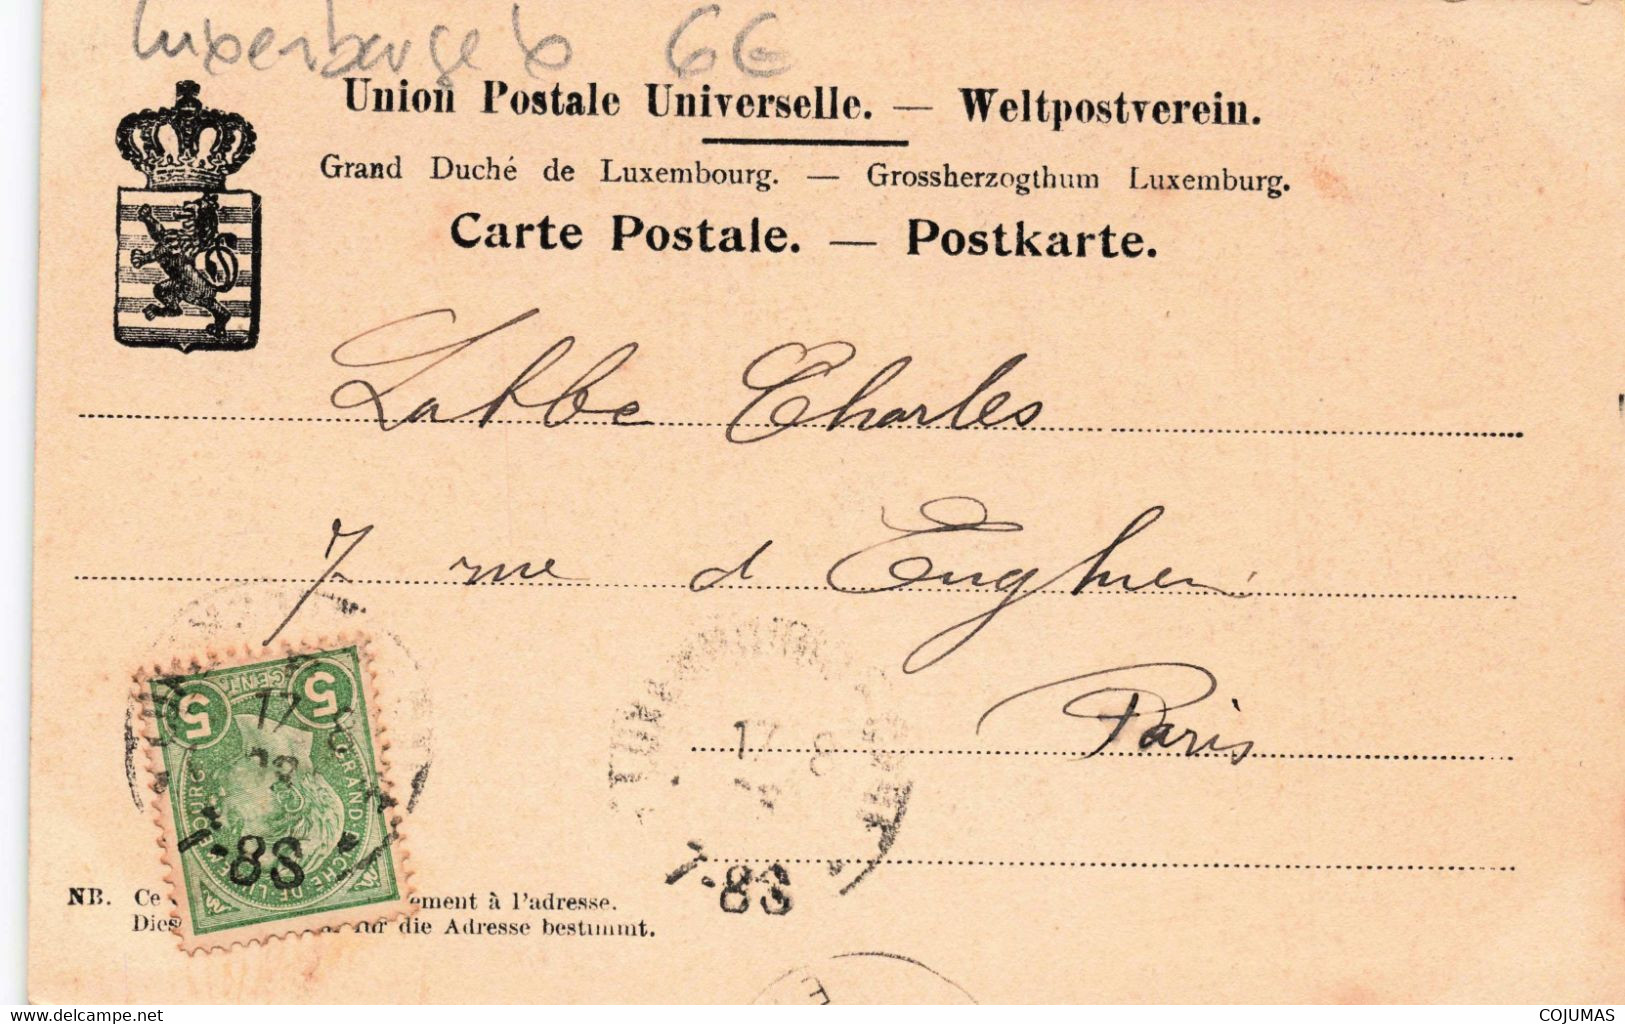 6€
Union Postale Universelle. — Weltpostverein.
Grand Duché de Luxembourg. — Grossherzogthum Luxemburg.
Carte Postale. — Postkarte.
Labbe Charles
7 rue d Enghien
Paris
5 CENT. 5
GRAND-DUCHÉ-DE-LUXEMBOURG
17 8
7-8S
17 8
7-8S
NB. Ce ement à l'adresse.
Dies für die Adresse bestimmt.
COJUMAS